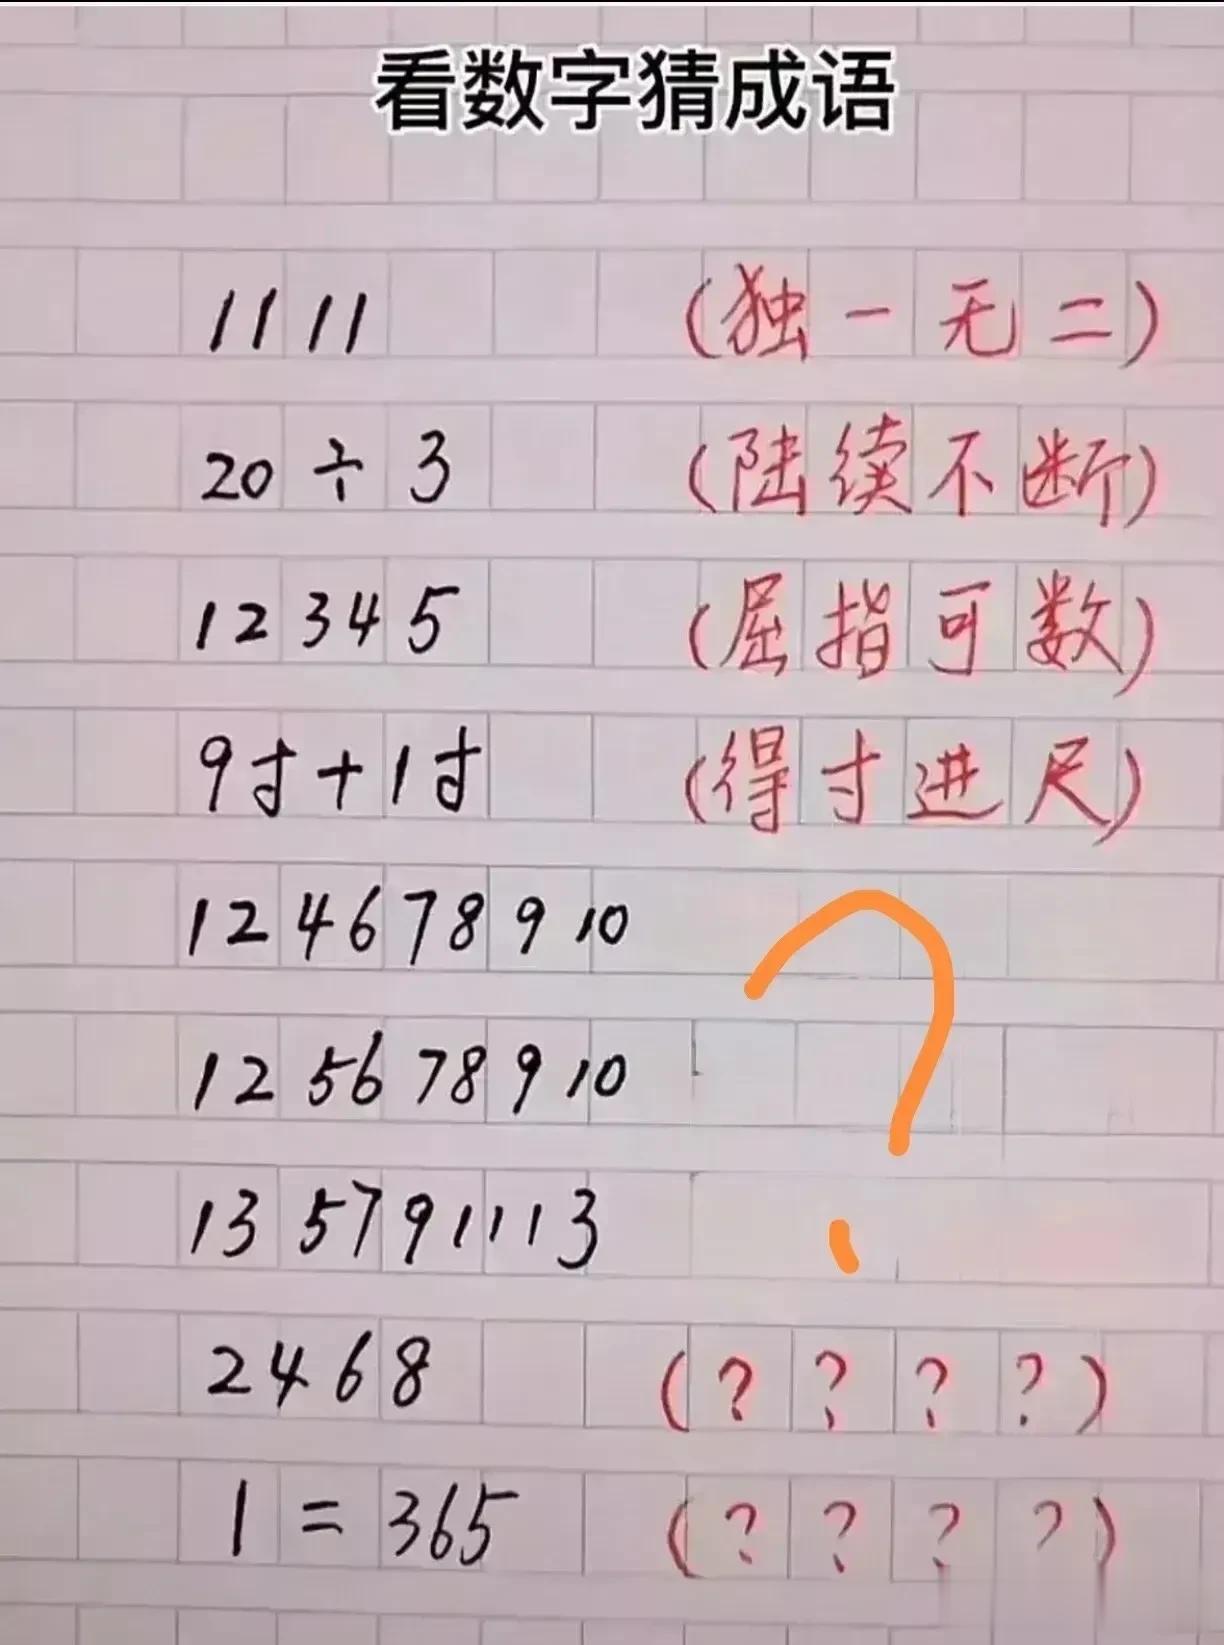 看数字猜成语
1111 (独一无二)
20÷3 (陆续不断)
12345 (屈指可数)
9寸+1寸 (得寸进尺)
124678910
125678910
135791113
2468 (????)
1=365 (????)